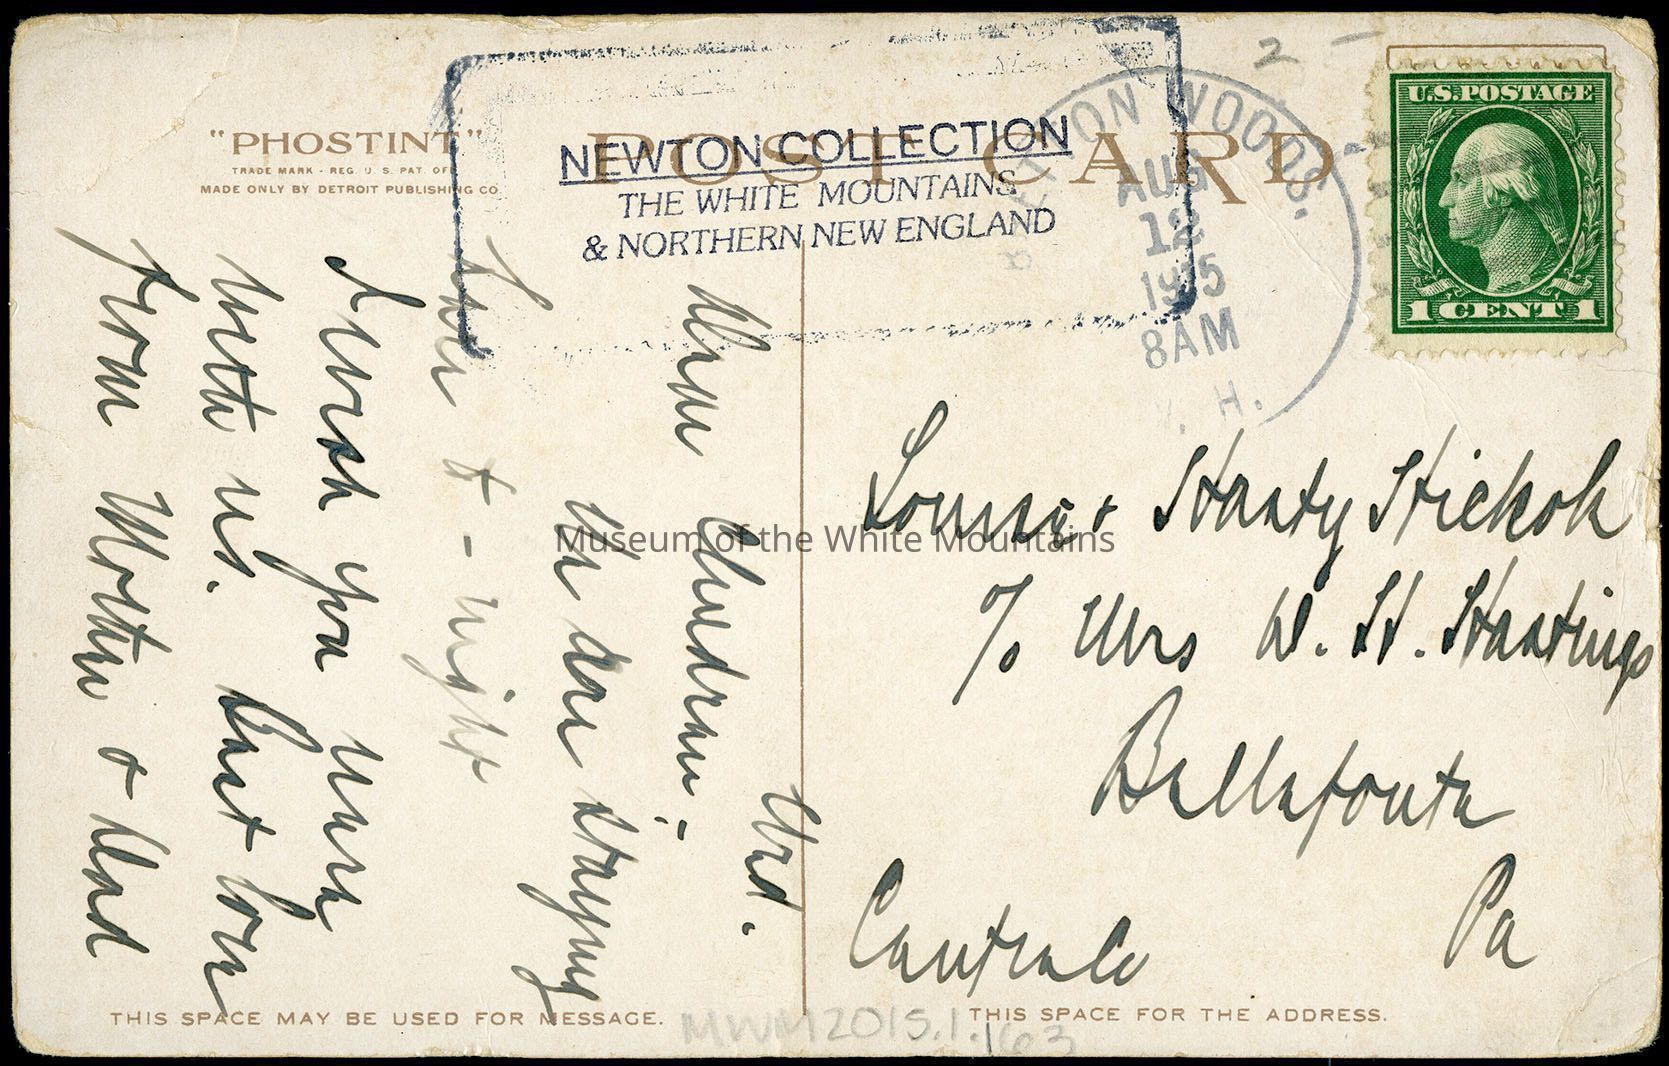 "PHOSTINT"
TRADE MARK - REG. U. S. PAT. OF
MADE ONLY BY DETROIT PUBLISHING CO.
POST CARD
NEWTON COLLECTION
THE WHITE MOUNTAINS
& NORTHERN NEW ENGLAND
WOODS.
AUG
12
1915
8AM
H.
2 -
U.S. POSTAGE
1 CENT 1
Wed.
Dear Children:-
We are staying
here to-night
I wish you were
with us. Best love
from Mother & Dad
Louise & Hasty Hickok
c/o Mrs W. H. Hastings
Bellefonte
Centre Co
Pa
Museum of the White Mountains
THIS SPACE MAY BE USED FOR MESSAGE.
THIS SPACE FOR THE ADDRESS.
MWM2015.1.163